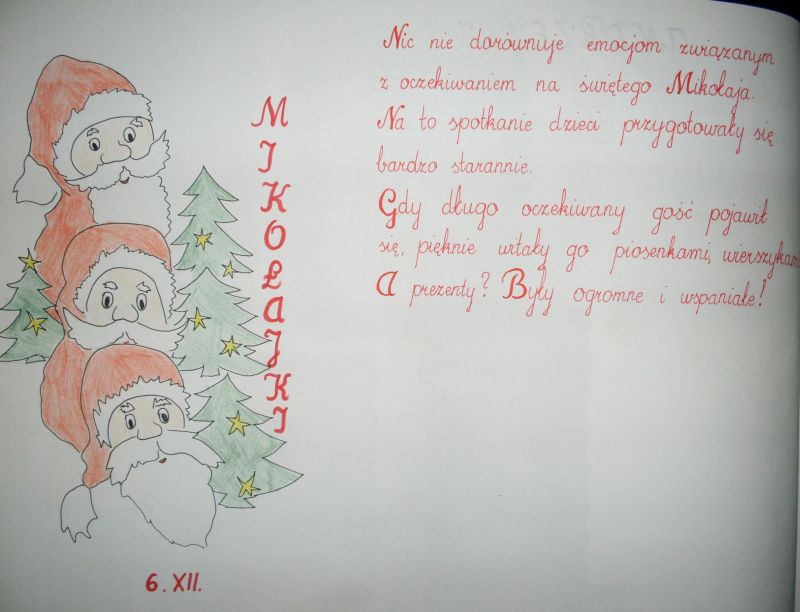 MIKOŁAJKI
Nic nie dorównuje emocjom związanym
z oczekiwaniem na świętego Mikołaja.
Na to spotkanie dzieci przygotowały się
bardzo starannie.
Gdy długo oczekiwany gość pojawił
się, pięknie witały go piosenkami, wierszykami
A prezenty? Były ogromne i wspaniałe!
6. XII.